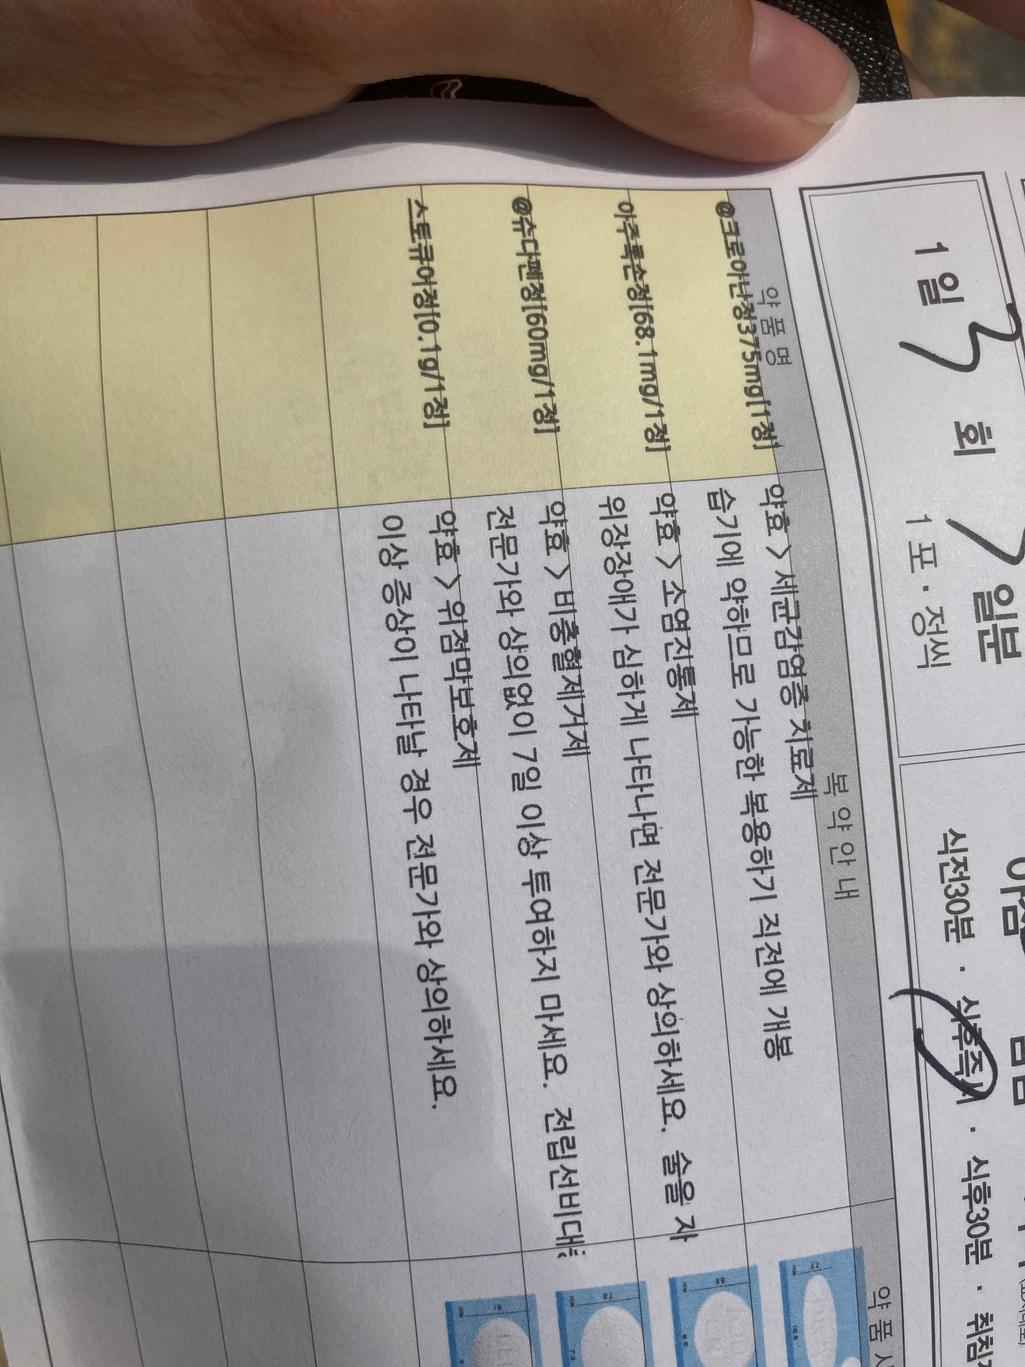 1일 3 회 7 일분
1포 · 정씩
식전30분 · 식후즉시 · 식후30분 · 취침
약 품 명
복 약 안 내
약 품 사
@크로아난정375mg[1정]
약효 > 세균감염증 치료제
습기에 약하므로 가능한 복용하기 직전에 개봉
아주록손정[68.1mg/1정]
약효 > 소염진통제
위장장애가 심하게 나타나면 전문가와 상의하세요. 술을 자
@슈다펜정[60mg/1정]
약효 > 비충혈제거제
전문가와 상의없이 7일 이상 투여하지 마세요. 전립선비대
스토큐어정[0.1g/1정]
약효 > 위점막보호제
이상 증상이 나타날 경우 전문가와 상의하세요.